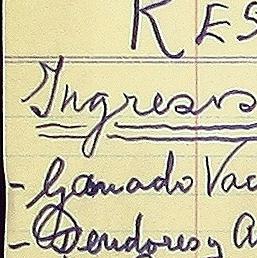 RES
Ingresos
- Ganado Vac
- Deudores y a